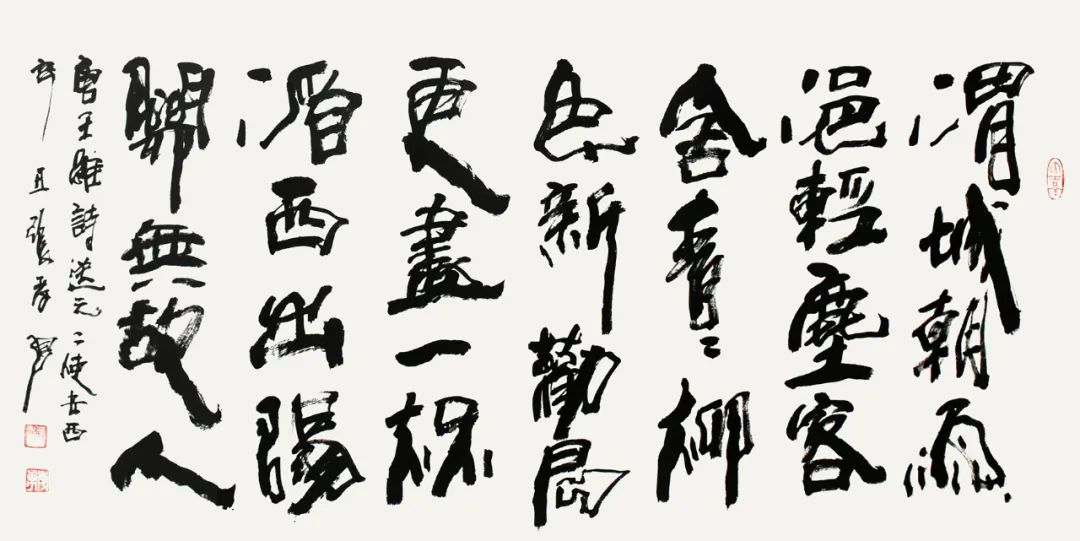 渭城朝雨
浥輕塵客
舍青〻柳
色新勸君
更盡一杯
酒西出陽
關無故人
唐王維詩送元二使安西
辛丑張